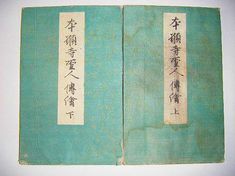 本願寺聖人傳繪 上
本願寺聖人傳繪 下